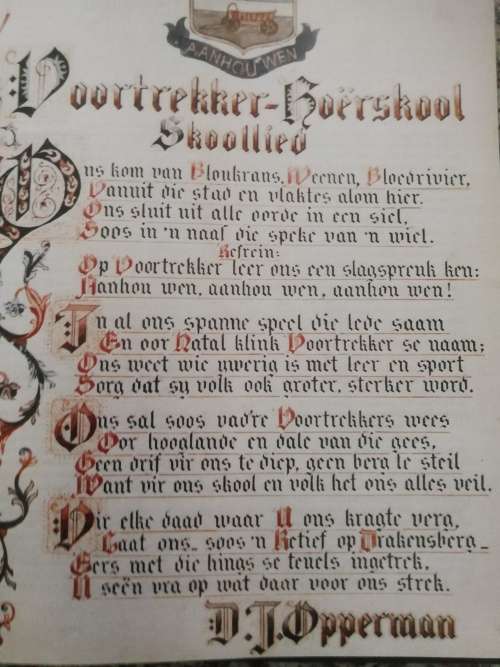 AANHOU WEN
Voortrekker-Hoërskool
Skoollied
Ons kom van Bloukrans, Weenen, Bloedrivier,
Vanuit die stad en vlaktes alom hier.
Ons sluit uit alle oorde in een siel,
Soos in 'n naaf die speke van 'n wiel.
Refrein:
Op Voortrekker leer ons een slagspreuk ken:
Aanhou wen, aanhou wen, aanhou wen!
In al ons spanne speel die lede saam
En oor Natal klink Voortrekker se naam;
Ons weet wie ywerig is met leer en sport
Sorg dat sy volk ook groter, sterker word.
Ons sal soos vad're Voortrekkers wees
Oor hooglande en dale van die gees,
Geen drif vir ons te diep, geen berg te steil
Want vir ons skool en volk het ons alles veil.
Vir elke daad waar U ons kragte verg,
Laat ons_ soos 'n Retief op Drakensberg_
Eers met die hings se teuels ingetrek,
U seën vra op wat daar voor ons strek.
D.J.Opperman